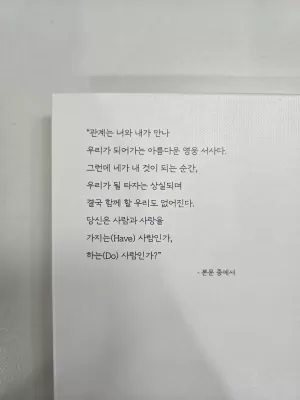 "관계는 너와 내가 만나
우리가 되어가는 아름다운 영웅 서사다.
그런데 네가 내 것이 되는 순간,
우리가 될 타자는 상실되며
결국 함께 할 우리도 없어진다.
당신은 사람과 사랑을
가지는(Have) 사람인가,
하는(Do) 사람인가?"
- 본문 중에서